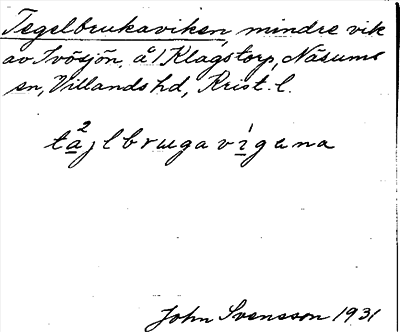 Tegelbrukaviken, mindre vik
av Ivösjön, å 1 Klagstorp, Näsums
sn, Villands hd, Krist. l.
ta²jlbrugavígena
John Svensson 1931